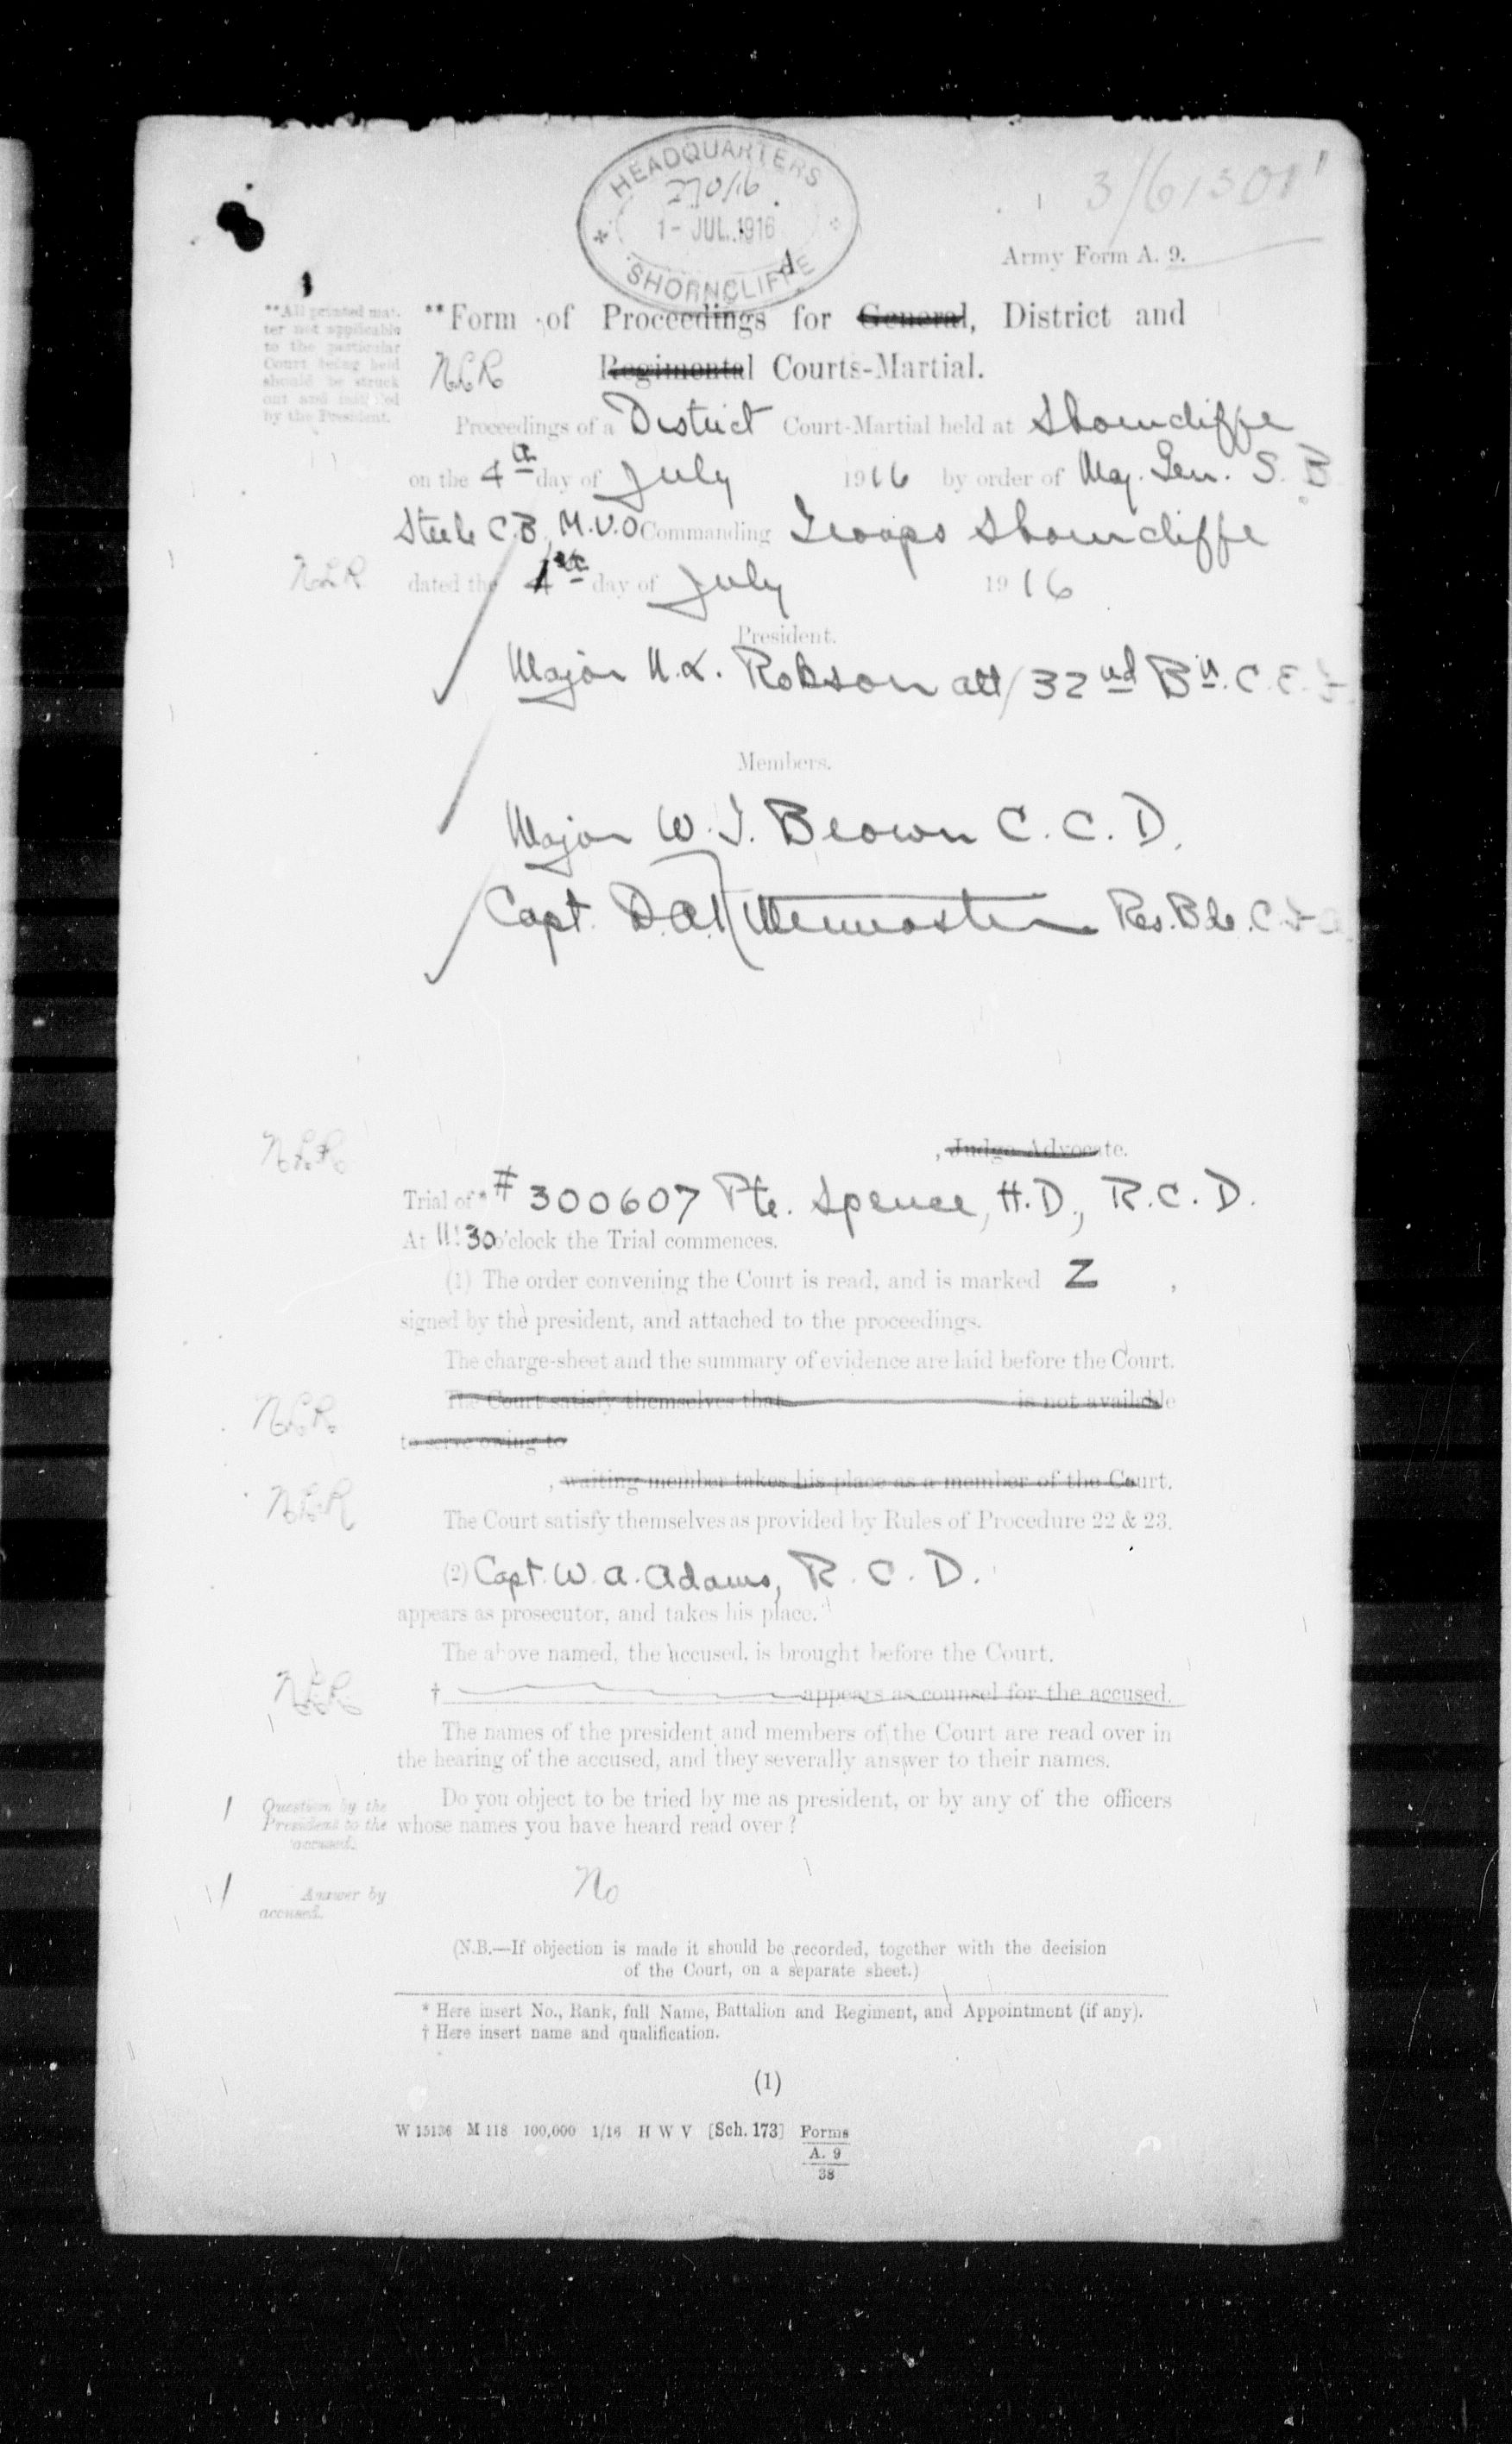 HEADQUARTERS
1 - JUL. 1916
SHORNCLIFFE
3/61301
Army Form A. 9.
**All printed mat-
ter not applicable
to the particular
Court being held
should be struck
out and initialled
by the President.
**Form of Proceedings for General, District and
NLR Regimental Courts-Martial.
Proceedings of a District Court-Martial held at Shorncliffe
on the 4th day of July 1916 by order of Maj. Gen. S. B
Steele C.B. M.V.O Commanding Troops Shorncliffe
NLR dated the 1st day of July 1916
President.
Major N.L. Robson att/32nd Bn. C.E.F.
Members.
Major W.J. Brown C.C.D.
Capt. D.A. Res. Bde. C.F.A.
NLR
, Judge Advocate.
Trial of* #300607 Pte. Spence, H.D., R.C.D.
At 11:30 o'clock the Trial commences.
(1) The order convening the Court is read, and is marked Z ,
signed by the president, and attached to the proceedings.
The charge-sheet and the summary of evidence are laid before the Court.
NLR The Court satisfy themselves that is not available
to serve owing to
, waiting member takes his place as a member of the Court.
NLR
The Court satisfy themselves as provided by Rules of Procedure 22 & 23.
(2) Capt. W.A. Adams, R.C.D.
appears as prosecutor, and takes his place.
The above named, the accused, is brought before the Court.
NLR † appears as counsel for the accused.
The names of the president and members of the Court are read over in
the hearing of the accused, and they severally answer to their names.
Question by the
President to the
accused.
Do you object to be tried by me as president, or by any of the officers
whose names you have heard read over ?
Answer by
accused.
No
(N.B.—If objection is made it should be recorded, together with the decision
of the Court, on a separate sheet.)
* Here insert No., Rank, full Name, Battalion and Regiment, and Appointment (if any).
† Here insert name and qualification.
(1)
W 15136 M 118 100,000 1/16 H W V [Sch. 173] Forms
A. 9
38